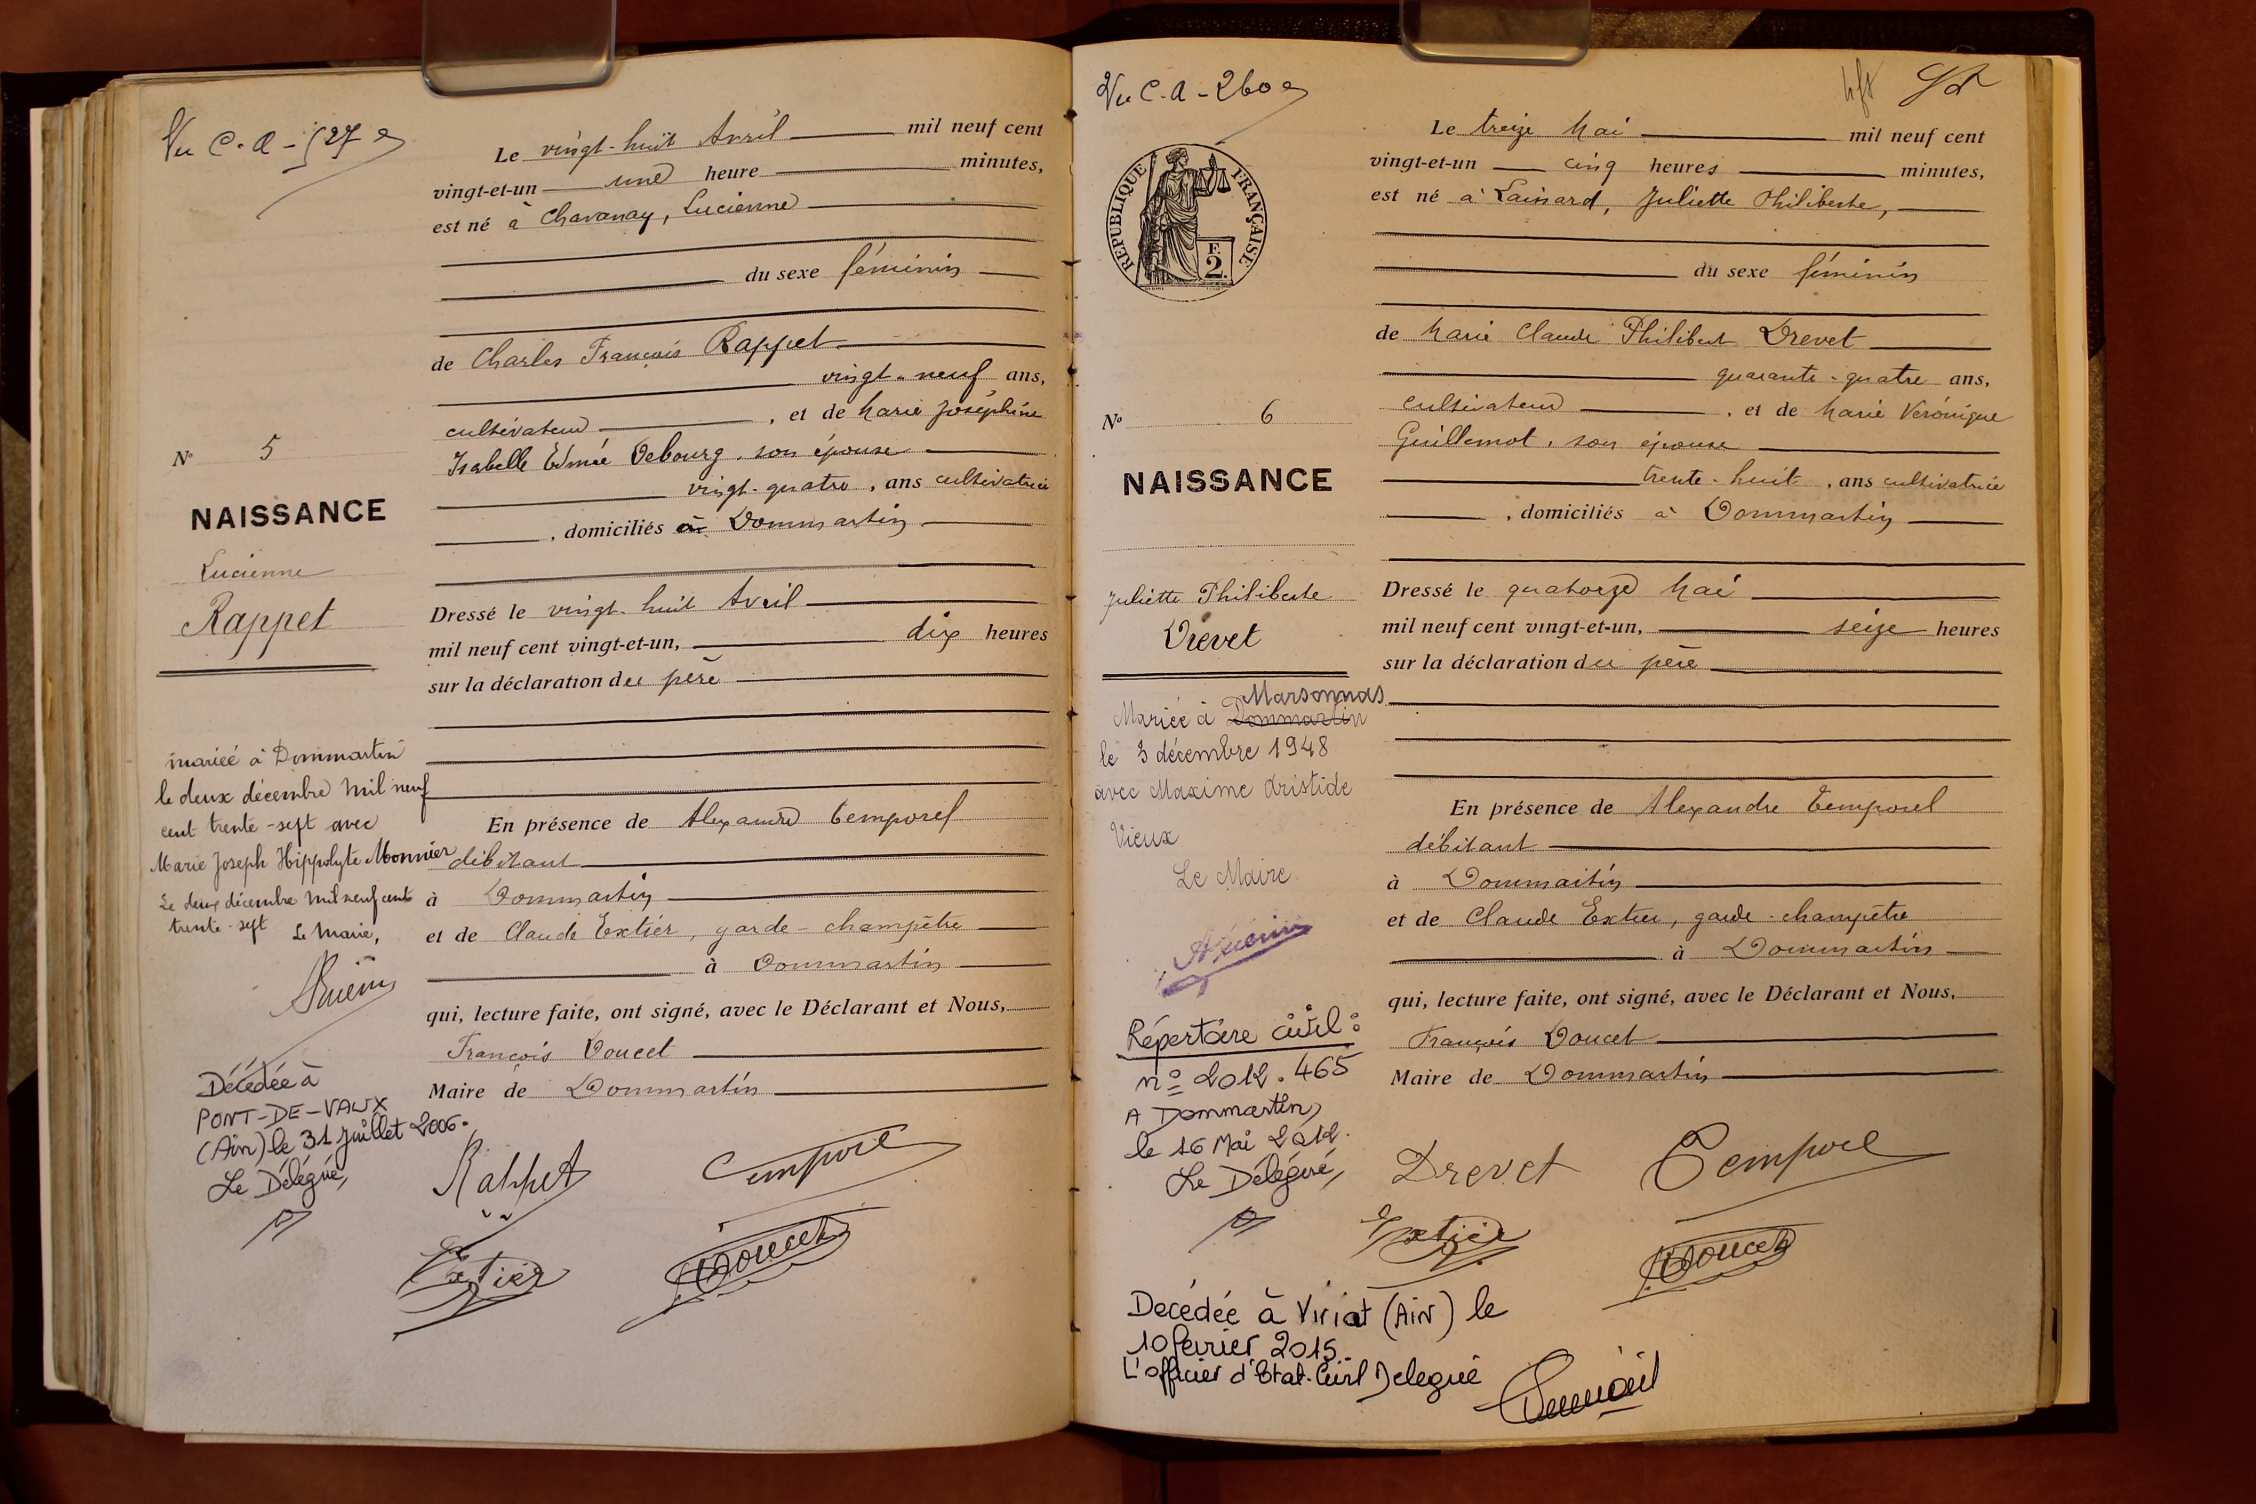 Vu C.A - 527
Le vingt-huit Avril mil neuf cent
vingt-et-un une heure minutes,
est né à Chavanay, Lucienne
du sexe féminin
de Charles François Rappet
vingt-neuf ans,
cultivateur , et de Marie Joséphine
Isabelle Edmée Debourg, son épouse
vingt-quatre , ans cultivatrice
, domiciliés à Dommartin
N° 5
NAISSANCE
Lucienne
Rappet
Dressé le vingt-huit Avril
mil neuf cent vingt-et-un, dix heures
sur la déclaration du père
mariée à Dommartin
le deux décembre mil neuf
cent trente-sept avec
Marie Joseph Hippolyte Monnier
Le deux décembre mil neuf cent
trente-sept Le Maire,
En présence de Alexandre Temporel
débitant
à Dommartin
et de Claude Extier, garde-champêtre
à Dommartin
qui, lecture faite, ont signé, avec le Déclarant et Nous,
François Doucet
Maire de Dommartin
Décédée à
PONT-DE-VAUX
(Ain) le 31 Juillet 2006.
Le Délégué,
Rappet
Temporel
Extier
Doucet
Vu C.A - 260
Le treize Mai mil neuf cent
vingt-et-un cinq heures minutes,
est né à Juliette Philiberte,
du sexe féminin
RÉPUBLIQUE FRANÇAISE
F.
2.
de Marie Claude Philibert Drevet
quarante-quatre ans,
cultivateur , et de Marie Véronique
Guillemot, son épouse
trente-huit , ans cultivatrice
, domiciliés à Dommartin
N° 6
NAISSANCE
Juliette Philiberte
Drevet
Dressé le quatorze Mai
mil neuf cent vingt-et-un, seize heures
sur la déclaration du père
Marsonnas
Mariée à Dommartin
le 3 décembre 1948
avec Maxime Aristide
Vieux
Le Maire
En présence de Alexandre Temporel
débitant
à Dommartin
et de Claude Extier, garde-champêtre
à Dommartin
qui, lecture faite, ont signé, avec le Déclarant et Nous,
François Doucet
Maire de Dommartin
Répertoire civil :
n° 2012.465
A Dommartin,
le 16 Mai 2012.
Le Délégué,
Drevet
Temporel
Extier
Doucet
Decédée à Viriat (AIN) le
10 fevrier 2015.
L'officier d'Etat-Civil Delegué